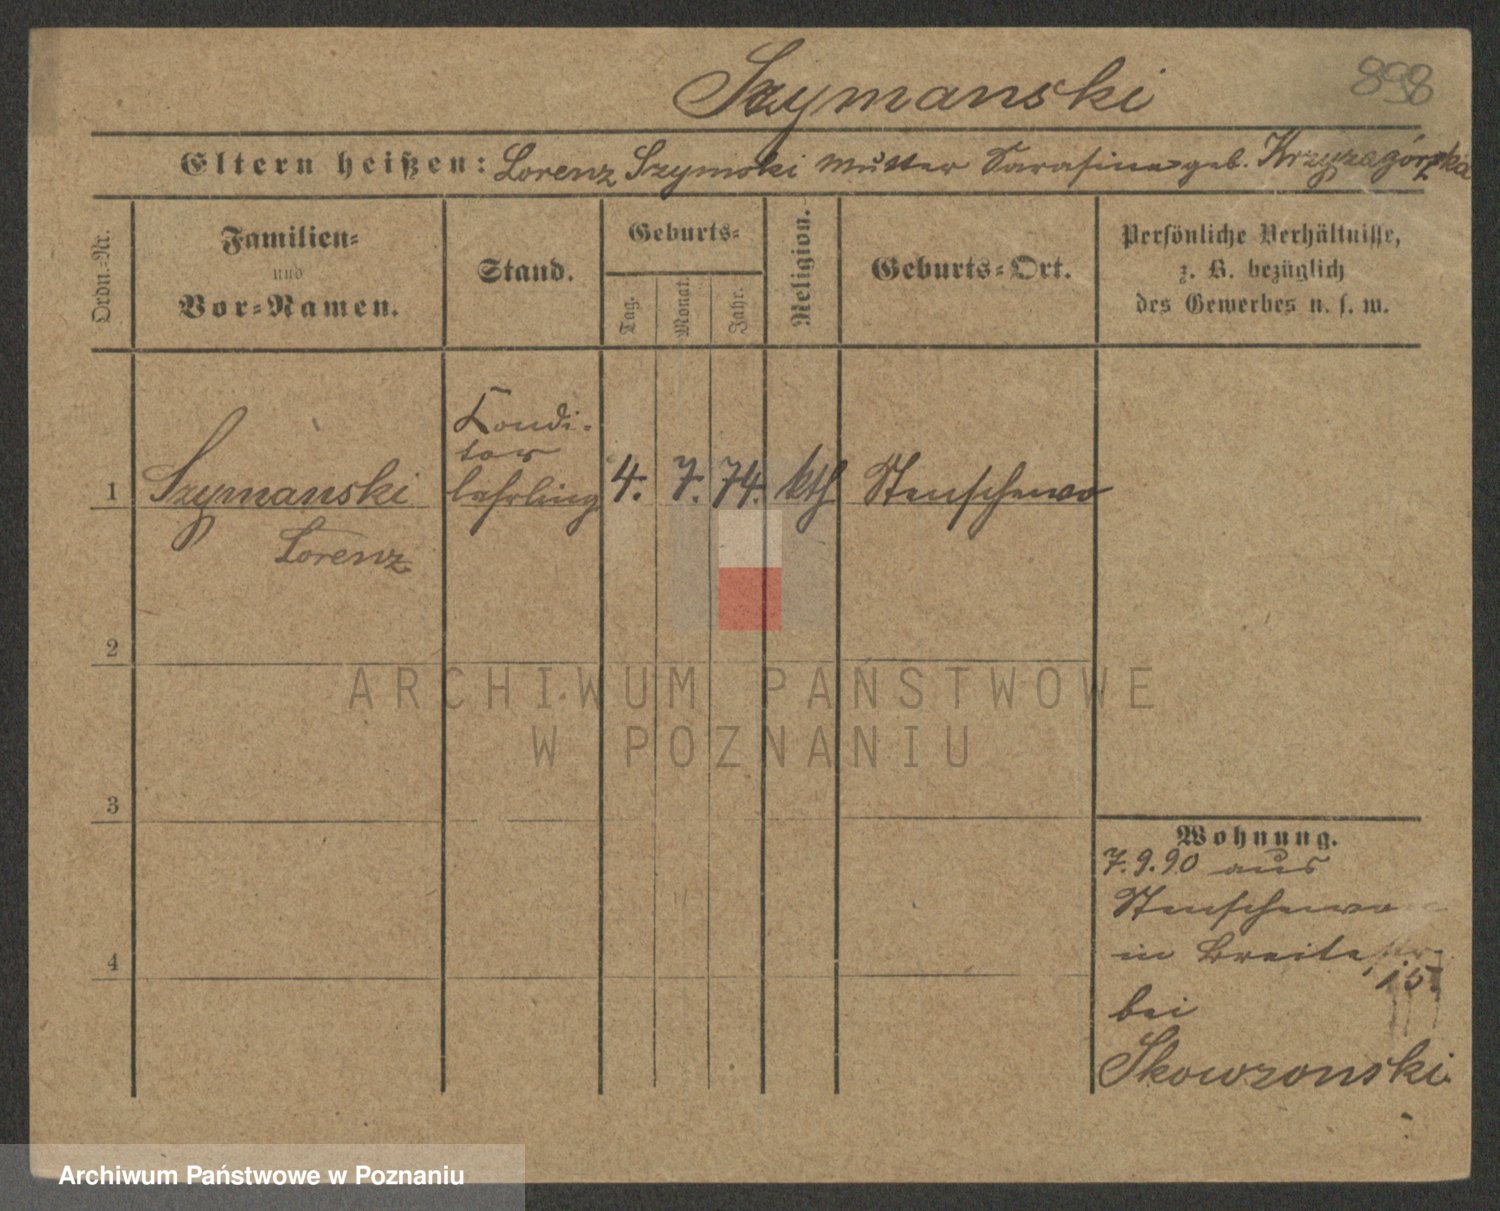 Szymanski
898
Eltern heißen: Lorenz Szymski Mutter Sarafina geb. Krzyzagórska
Ordn.-Nr.
Familien-
und
Vor-Namen.
Stand.
Geburts-
Tag.
Monat.
Jahr.
Religion.
Geburts-Ort.
Persönliche Verhältnisse,
z. B. bezüglich
des Gewerbes u. s. w.
Kondi-
tor
1 Szymanski lehrling 4. 7. 74. kth Stenschewo
Lorenz
2
ARCHIWUM PAŃSTWOWE
W POZNANIU
3
Wohnung.
7.9.90 aus
Stenschewo
4
in Breitestr.
15.
bei
Skowronski
Archiwum Państwowe w Poznaniu